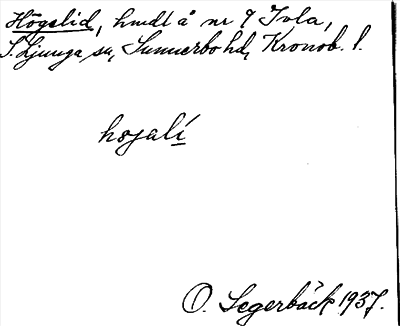 Högelid, hmdt å nr 9 Tvla,
S. Ljunga sn, Sunnerbo hd, Kronob. l.
hogalí
O. Segerbäck 1937.